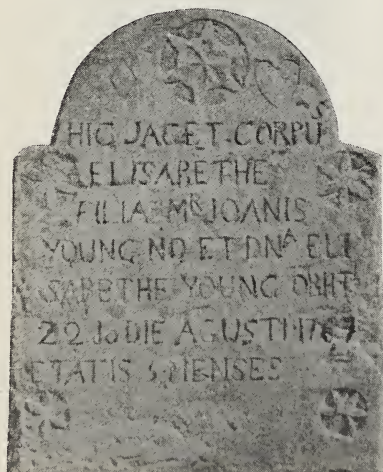 HIC JACET CORPUS
ELISABETHE
FILIA MR JOANIS
YOUNG ND ET DNA ELI
SABETHE YOUNG OBIIT
22 do DIE AGUSTI 1767
ETATIS 5 MENSES